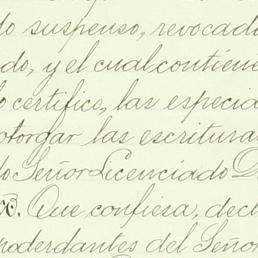 do suspenso, revocado
do, y el cual contiene
lo certifico, las especia
otorgar las escrituras
do Señor Licenciado D
B. Que confiesa, decl
poderdantes del Señor